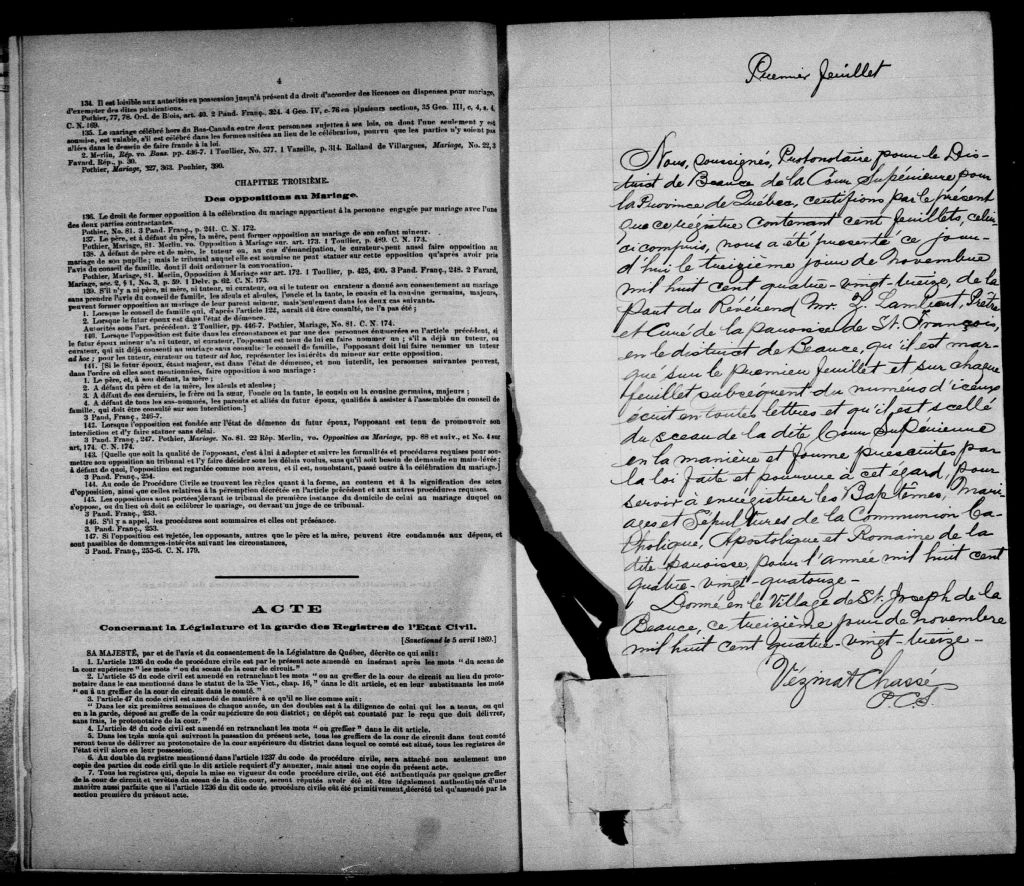 4
134. Il est loisible aux autorités en possession jusqu'à présent du droit d'accorder des licences ou dispenses pour mariage,
d'exempter des dites publications.
Pothier, 77, 78. Ord. de Blois, art. 40. 2 Pand. Franç. 324. 4 Geo. IV, c. 76 en plusieurs sections, 35 Geo. III, c, 4, s. 4,
C. N. 169.
135. Le mariage célébré hors du Bas-Canada entre deux personnes sujettes à ses lois, ou dont l'une seulement y est
soumise, est valable, s'il est célébré dans les formes usitées au lieu de la célébration, pourvu que les parties n'y soient pas
allées dans le dessein de faire fraude à la loi.
2. Merlin, Rép. vo. Bans. pp. 436-7. 1 Toullier, No. 577. 1 Vazeille, p. 314. Rolland de Villargues, Mariage, No. 22, 3
Favard. Rép., p. 30.
Pothier, Mariage, 327, 363. Pouhier, 390.
CHAPITRE TROISIÈME.
Des oppositions au Mariage.
136. Le droit de former opposition à la célébration du mariage appartient à la personne engagée par mariage avec l'une
des deux parties contractantes.
Pothier, No. 81. 3 Pand. Franç., p. 241. C. N. 172.
137. Le père, et à défaut du père, la mère, peut former opposition au mariage de son enfant mineur.
Pothier, Mariage, 81. Merlin, vo. Opposition à Mariage sur. art. 173. 1 Toullier, p. 489. C. N. 173.
138. A défaut de père et de mère, le tuteur ou, au cas d'émancipation, le curateur, peut aussi faire opposition au
mariage de son pupille; mais le tribunal auquel elle est soumise ne peut statuer sur cette opposition qu'après avoir pris
l'avis du conseil de famille, dont il doit ordonner la convocation.
Pothier, Mariage, 81. Merlin, Opposition à Mariage sur art. 172. 1 Toullier, p. 425, 490. 3 Pand. Franç., 248. 2 Favard,
Mariage, sec. 2, § 1, No. 3, p. 59. 1 Delv. p. 62. C. N. 175.
139. S'il n'y a ni père, ni mère, ni tuteur, ni curateur, ou si le tuteur ou curateur a donné son consentement au mariage
sans prendre l'avis du conseil de famille, les aïeuls et aïeules, l'oncle et la tante, le cousin et la cousine germains, majeurs,
peuvent former opposition au mariage de leur parent mineur, mais seulement dans les deux cas suivants.
1. Lorsque le conseil de famille qui, d'après l'article 122, aurait dû être consulté, ne l'a pas été;
2. Lorsque le futur époux est dans l'état de démence.
Autorités sous l'art. précédent. 2 Toullier, pp. 446-7. Pothier, Mariage, No. 81. C. N. 174.
140. Lorsque l'opposition est faite dans les circonstances et par une des personnes énumérées en l'article précédent, si
le futur époux mineur n'a ni tuteur, ni curateur, l'opposant est tenu de lui en faire nommer un; s'il a déjà un tuteur, ou
curateur, qui ait déjà consenti au mariage sans consulter le conseil de famille, l'opposant doit lui faire nommer un tuteur
ad hoc; pour les tuteur, curateur ou tuteur ad hoc, représenter les intérêts du mineur sur cette opposition.
141. [Si le futur époux, étant majeur, est dans l'état de démence, et non interdit, les personnes suivantes peuvent,
dans l'ordre où elles sont mentionnées, faire opposition à son mariage:
1. Le père, et, à son défaut, la mère;
2. A défaut du père et de la mère, les aïeuls et aïeules;
3. A défaut de ces derniers, le frère ou la sœur, l'oncle ou la tante, le cousin ou la cousine germains, majeurs;
4. A défaut de tous les sus-nommés, les parents et alliés du futur époux, qualifiés à assister à l'assemblée du conseil de
famille, qui doit être consulté sur son interdiction.]
3 Pand. Franç., 246-7.
142. Lorsque l'opposition est fondée sur l'état de démence du futur époux, l'opposant est tenu de promouvoir son
interdiction et d'y faire statuer sans délai.
3 Pand. Franç., 247. Pothier, Mariage. No. 81. 22 Rép. Merlin, vo. Opposition au Mariage, pp. 88 et suiv., et No. 4 sur
art, 174. C. N. 174.
143. [Quelle que soit la qualité de l'opposant, c'est à lui à adopter et suivre les formalités et procédures requises pour sou-
mettre son opposition au tribunal et l'y faire décider sous les délais voulus, sans qu'il soit besoin de demande en main-levée;
à défaut de quoi, l'opposition est regardée comme non avenue, et il est, nonobstant, passé outre à la célébration du mariage.]
3 Pand. Franç., 254.
144. Au code de Procédure Civile se trouvent les règles quant à la forme, au contenu et à la signification des actes
d'opposition, ainsi que celles relatives à la péremption décrétée en l'article précédent et aux autres procédures requises.
145. Les oppositions sont portées devant le tribunal de première instance du domicile de celui au mariage duquel on
s'oppose, ou du lieu où doit se célébrer le mariage, ou devant un juge de ce tribunal.
3 Pand. Franç., 253.
146. S'il y a appel, les procédures sont sommaires et elles ont préséance.
3 Pand. Franç., 253.
147. Si l'opposition est rejetée, les opposants, autres que le père et la mère, peuvent être condamnés aux dépens, et
sont passibles de dommages-intérêts suivant les circonstances,
3 Pand. Franç., 255-6. C. N. 179.
ACTE
Concernant la Législature et la garde des Registres de l'Etat Civil.
[Sanctionné le 5 avril 1869.]
SA MAJESTÉ, par et de l'avis et du consentement de la Législature de Québec, décrète ce qui suit:
1. L'article 1236 du code de procédure civile est par le présent acte amendé en insérant après les mots "du sceau de
la cour supérieure" les mots "ou du sceau de la cour de circuit."
2. L'article 45 du code civil est amendé en retranchant les mots "ou au greffier de la cour de circuit au lieu du proto-
notaire dans le cas mentionné dans le statut de la 25e Vict., chap. 16," dans le dit article, et en leur substituants les mots
"ou à un greffier de la cour de circuit dans le comté."
3. l'article 47 du code civil est amendé de manière à ce qu'il se lise comme suit:
"Dans les six premières semaines de chaque année, un des doubles est à la diligence de celui qui les a tenus, ou qui
en a la garde, déposé au greffe de la coûr supérieure de son district; ce dépôt est constaté par le reçu que doit délivrer,
sans frais, le protonotaire de la cour."
4. L'article 48 du code civil est amendé en retranchant les mots "ou greffier" dans le dit article.
5. Dans les trois mois qui suivront la passation du présent acte, tous les greffiers de la cour de circuit dans tout comté
seront tenus de délivrer au protonotaire de la cour supérieure du district dans lequel ce comté est situé, tous les registres de
l'état civil alors en leur possession.
6. Au double du registre mentionné dans l'article 1237 du code de procédure civile, sera attaché non seulement une
copie des parties du code civil que le dit article requiert d'y annexer, mais aussi une copie du présent acte.
7. Tous les registres qui, depuis la mise en vigueur du code procédure civile, ont été authentiqués par quelque greffier
de la cour de circuit et revêtus du sceau de la dite cour, seront réputés avoir été et être légalement authentiqués d'une
manière aussi parfaite que si l'article 1236 du dit code de procédure civile eût été primitivement décrété tel qu'amendé par la
section première du présent acte.
Premier feuillet
Nous, soussignés, Protonotaire pour le Dis-
trict de Beauce de la Cour Supérieure pour
la Province de Québec, certifions par le présent
que ce régistre contenant cent feuillets, celui-
ci compris, nous a été présenté ce jour-
d'hui le treizième jour de novembre
mil huit cent quatre-vingt-treize, de la
part du Révérend Mr. Z. Lambert, Prêtre
et Curé de la paroisse de St. François,
en le district de Beauce, qu'il est mar-
qué sur le premier feuillet et sur chaque
feuillet subséquent du numéro d'iceux
écrit en toutes lettres et qu'il est scellé
du sceau de la dite Cour Supérieure
en la manière et forme prescrites par
la loi faite et pourvue à cet égard, pour
servir à enregistrer les Baptêmes, Mari-
ages et Sépultures de la Communion Ca-
tholique, Apostolique et Romaine de la
dite paroisse, pour l'année mil huit cent
quatre-vingt-quatorze-
Donné en le Village de St. Joseph de la
Beauce, ce treizième jour de novembre
mil huit cent quatre-vingt-treize-
Vézina & Chassé
P.C.S.